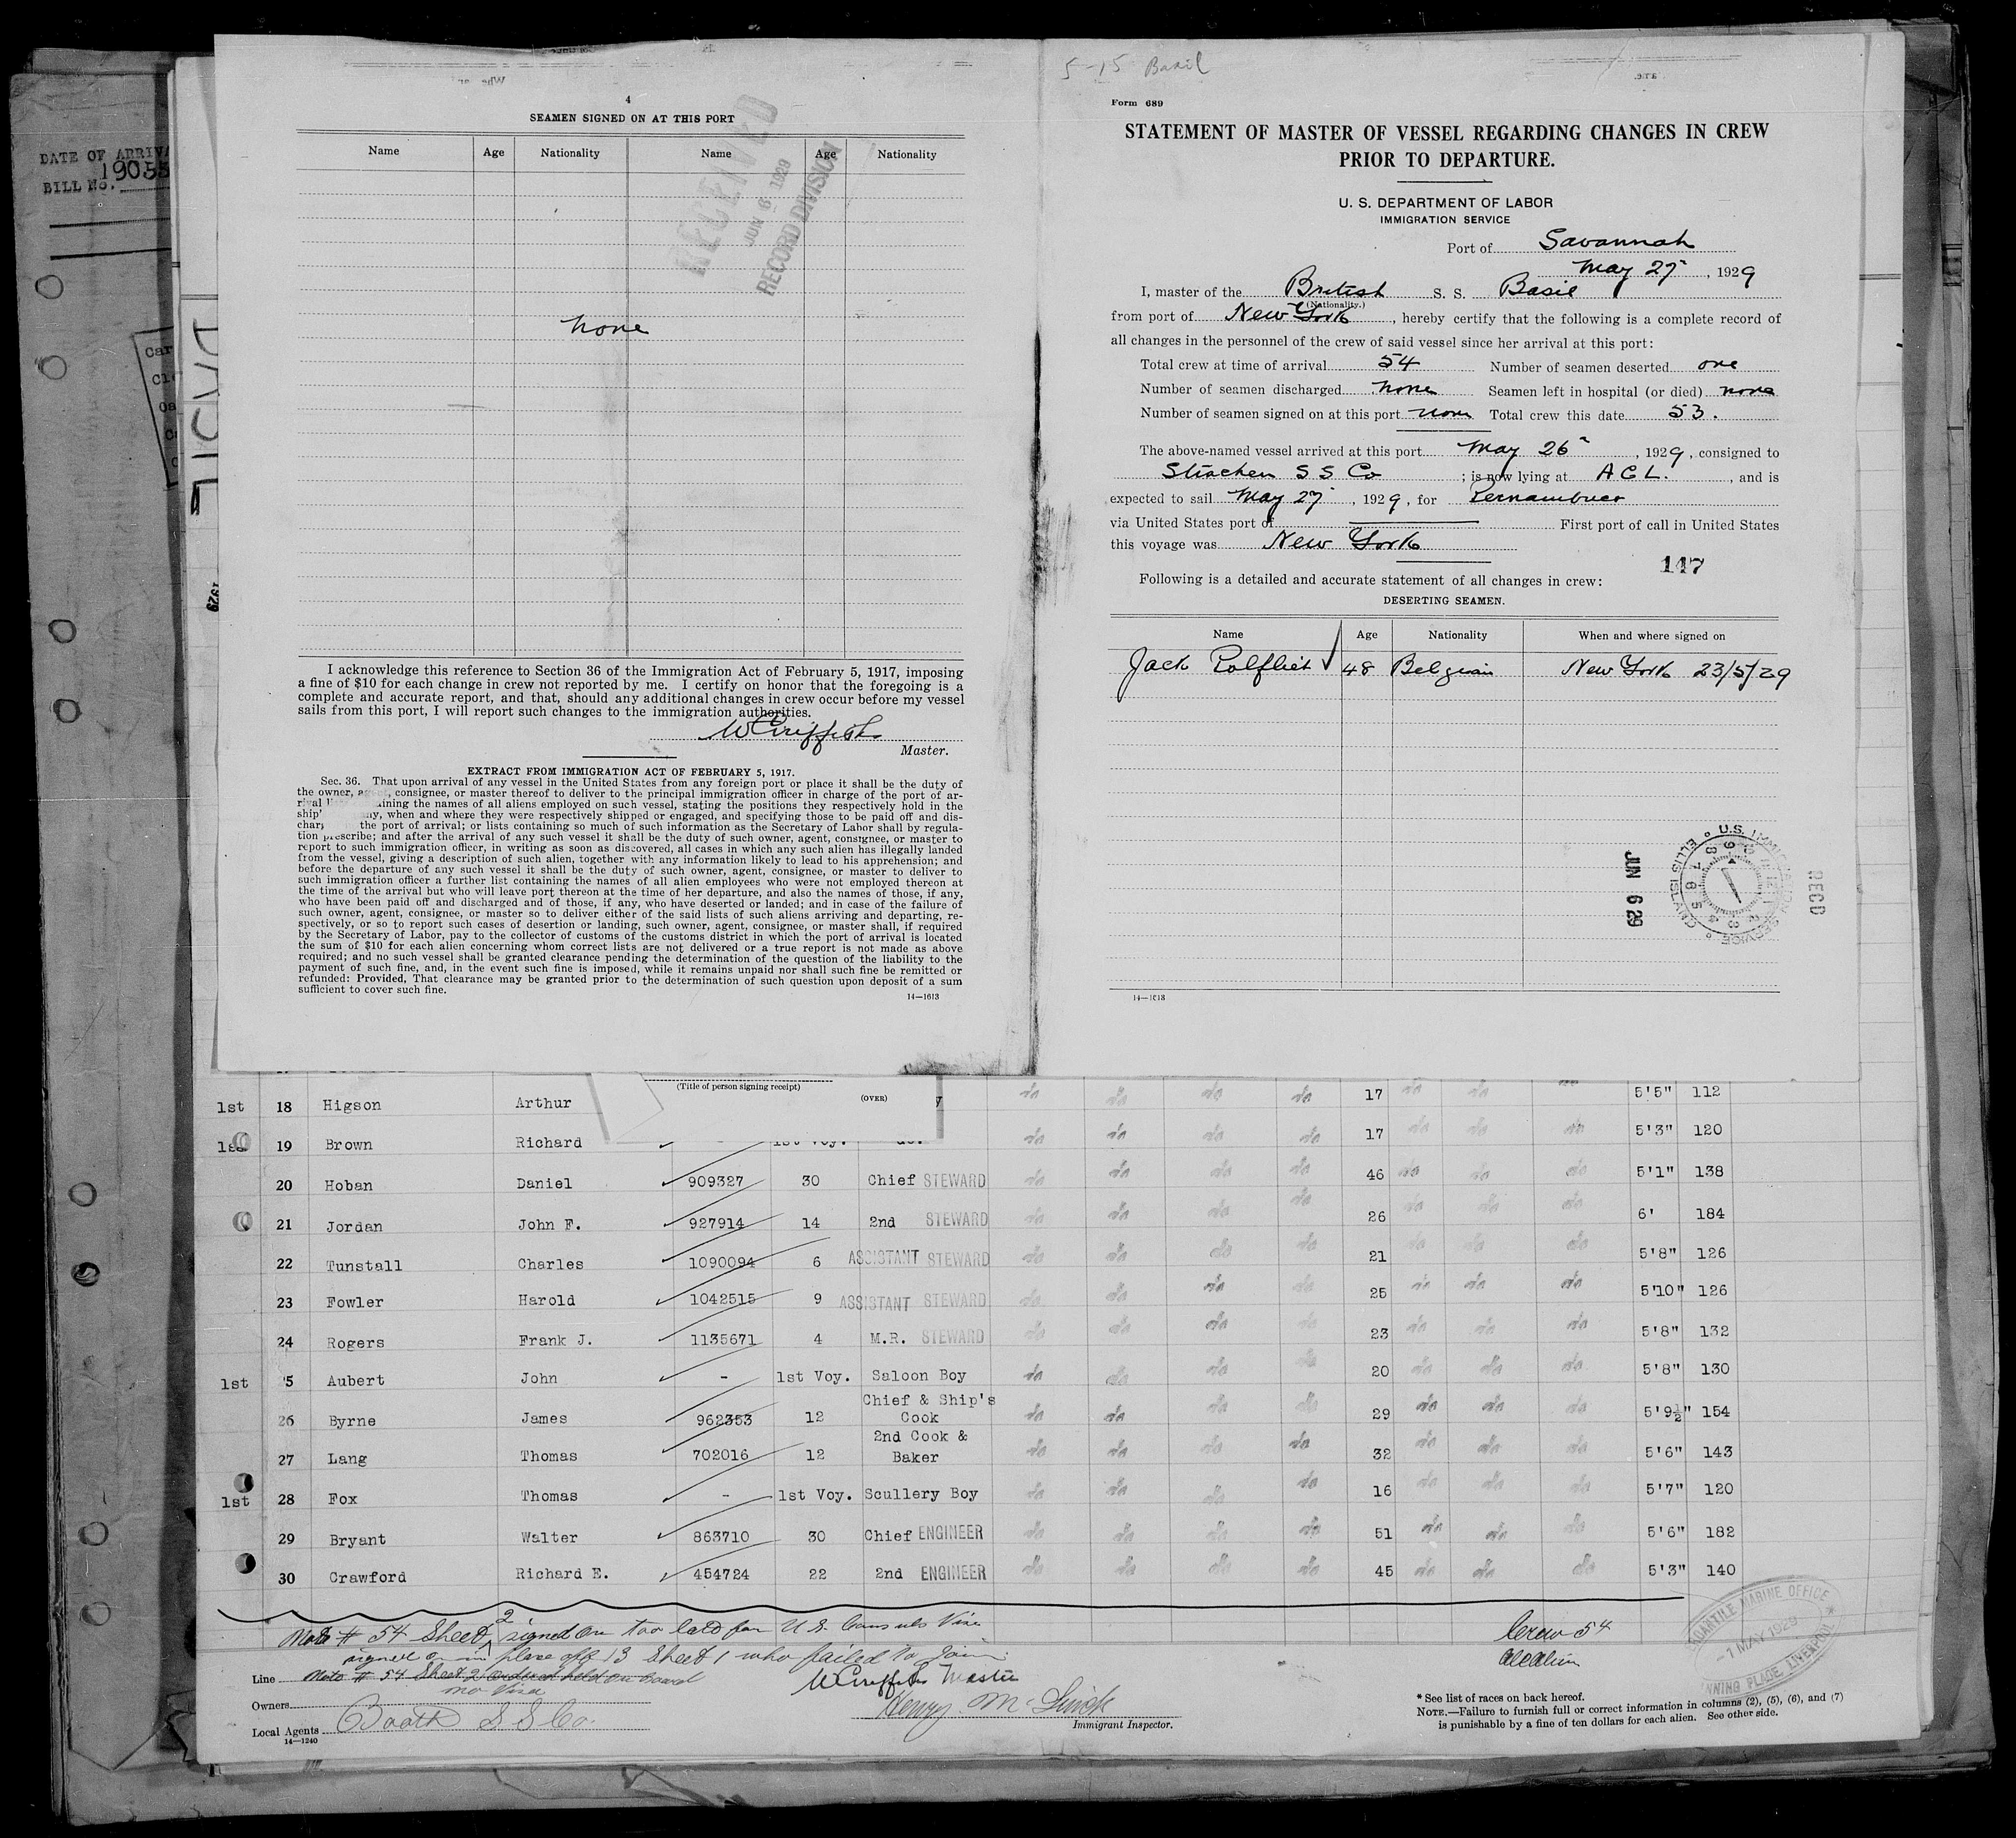 DATE OF ARRIVA
BILL No. 19055
4
SEAMEN SIGNED ON AT THIS PORT
Name Age Nationality Name Age Nationality
RECEIVED
JUN 6 1929
RECORD DIVISION
none
I acknowledge this reference to Section 36 of the Immigration Act of February 5, 1917, imposing
a fine of $10 for each change in crew not reported by me. I certify on honor that the foregoing is a
complete and accurate report, and that, should any additional changes in crew occur before my vessel
sails from this port, I will report such changes to the immigration authorities.
W Griffith
Master.
EXTRACT FROM IMMIGRATION ACT OF FEBRUARY 5, 1917.
Sec. 36. That upon arrival of any vessel in the United States from any foreign port or place it shall be the duty of
the owner, agent, consignee, or master thereof to deliver to the principal immigration officer in charge of the port of ar-
rival aining the names of all aliens employed on such vessel, stating the positions they respectively hold in the
ship' ny, when and where they were respectively shipped or engaged, and specifying those to be paid off and dis-
char the port of arrival; or lists containing so much of such information as the Secretary of Labor shall by regula-
tion prescribe; and after the arrival of any such vessel it shall be the duty of such owner, agent, consignee, or master to
report to such immigration officer, in writing as soon as discovered, all cases in which any such alien has illegally landed
from the vessel, giving a description of such alien, together with any information likely to lead to his apprehension; and
before the departure of any such vessel it shall be the duty of such owner, agent, consignee, or master to deliver to
such immigration officer a further list containing the names of all alien employees who were not employed thereon at
the time of the arrival but who will leave port thereon at the time of her departure, and also the names of those, if any,
who have been paid off and discharged and of those, if any, who have deserted or landed; and in case of the failure of
such owner, agent, consignee, or master so to deliver either of the said lists of such aliens arriving and departing, re-
spectively, or so to report such cases of desertion or landing, such owner, agent, consignee, or master shall, if required
by the Secretary of Labor, pay to the collector of customs of the customs district in which the port of arrival is located
the sum of $10 for each alien concerning whom correct lists are not delivered or a true report is not made as above
required; and no such vessel shall be granted clearance pending the determination of the question of the liability to the
payment of such fine, and, in the event such fine is imposed, while it remains unpaid nor shall such fine be remitted or
refunded: Provided, That clearance may be granted prior to the determination of such question upon deposit of a sum
sufficient to cover such fine.
14—1613
5-15 Basil
Form 689
STATEMENT OF MASTER OF VESSEL REGARDING CHANGES IN CREW
PRIOR TO DEPARTURE.
U. S. DEPARTMENT OF LABOR
IMMIGRATION SERVICE
Port of Savannah
May 27, 1929
I, master of the British S. S. Basil
(Nationality.)
from port of New York, hereby certify that the following is a complete record of
all changes in the personnel of the crew of said vessel since her arrival at this port:
Total crew at time of arrival 54 Number of seamen deserted one
Number of seamen discharged none Seamen left in hospital (or died) none
Number of seamen signed on at this port none Total crew this date 53.
The above-named vessel arrived at this port May 26, 1929, consigned to
Strachen S S Co; is now lying at A C L., and is
expected to sail May 27, 1929, for Pernambuco
via United States port of First port of call in United States
this voyage was New York
147
Following is a detailed and accurate statement of all changes in crew:
DESERTING SEAMEN.
Name Age Nationality When and where signed on
Jack Rolfliet 48 Belgian New York 23/5/29
JUN 6 29
U.S. IMMIGRATION SERVICE ELLIS ISLAND
RECD
14—1613
(Title of person signing receipt)
(OVER)
1st 18 Higson Arthur 17 5'5" 112
1st 19 Brown Richard - 1st Voy. do. 17 5'3" 120
20 Hoban Daniel 909327 30 Chief STEWARD 46 5'1" 138
21 Jordan John F. 927914 14 2nd STEWARD 26 6' 184
22 Tunstall Charles 1090094 6 ASSISTANT STEWARD 21 5'8" 126
23 Fowler Harold 1042515 9 ASSISTANT STEWARD 25 5'10" 126
24 Rogers Frank J. 1135671 4 M.R. STEWARD 23 5'8" 132
1st 5 Aubert John - 1st Voy. Saloon Boy 20 5'8" 130
26 Byrne James 962353 12 Chief & Ship's Cook 29 5'9½" 154
27 Lang Thomas 702016 12 2nd Cook & Baker 32 5'6" 143
1st 28 Fox Thomas - 1st Voy. Scullery Boy 16 5'7" 120
29 Bryant Walter 863710 30 Chief ENGINEER 51 5'6" 182
30 Crawford Richard E. 454724 22 2nd ENGINEER 45 5'3" 140
Note # 54 Sheet 2 signed on too late for U.S. Consuls Visa
signed on in place off 13 Sheet 1 who failed to join
Line Note # 54 Sheet 2 held on board
no Visa
W Griffith Master
Crew 54
Owners
Local Agents Booth S S Co.
14—1240
Henry
Immigrant Inspector.
MERCANTILE MARINE OFFICE
-1 MAY 1929
LIVERPOOL
* See list of races on back hereof.
NOTE.—Failure to furnish full or correct information in columns (2), (5), (6), and (7)
is punishable by a fine of ten dollars for each alien. See other side.